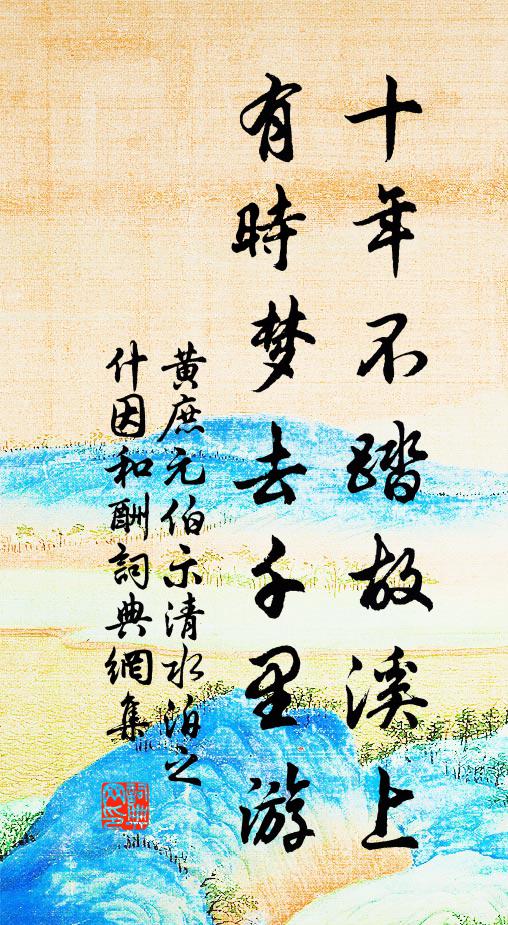 十年不踏故溪上
有時梦去千里游
黄庶元伯示清水泊之
什因和酬詞典網集